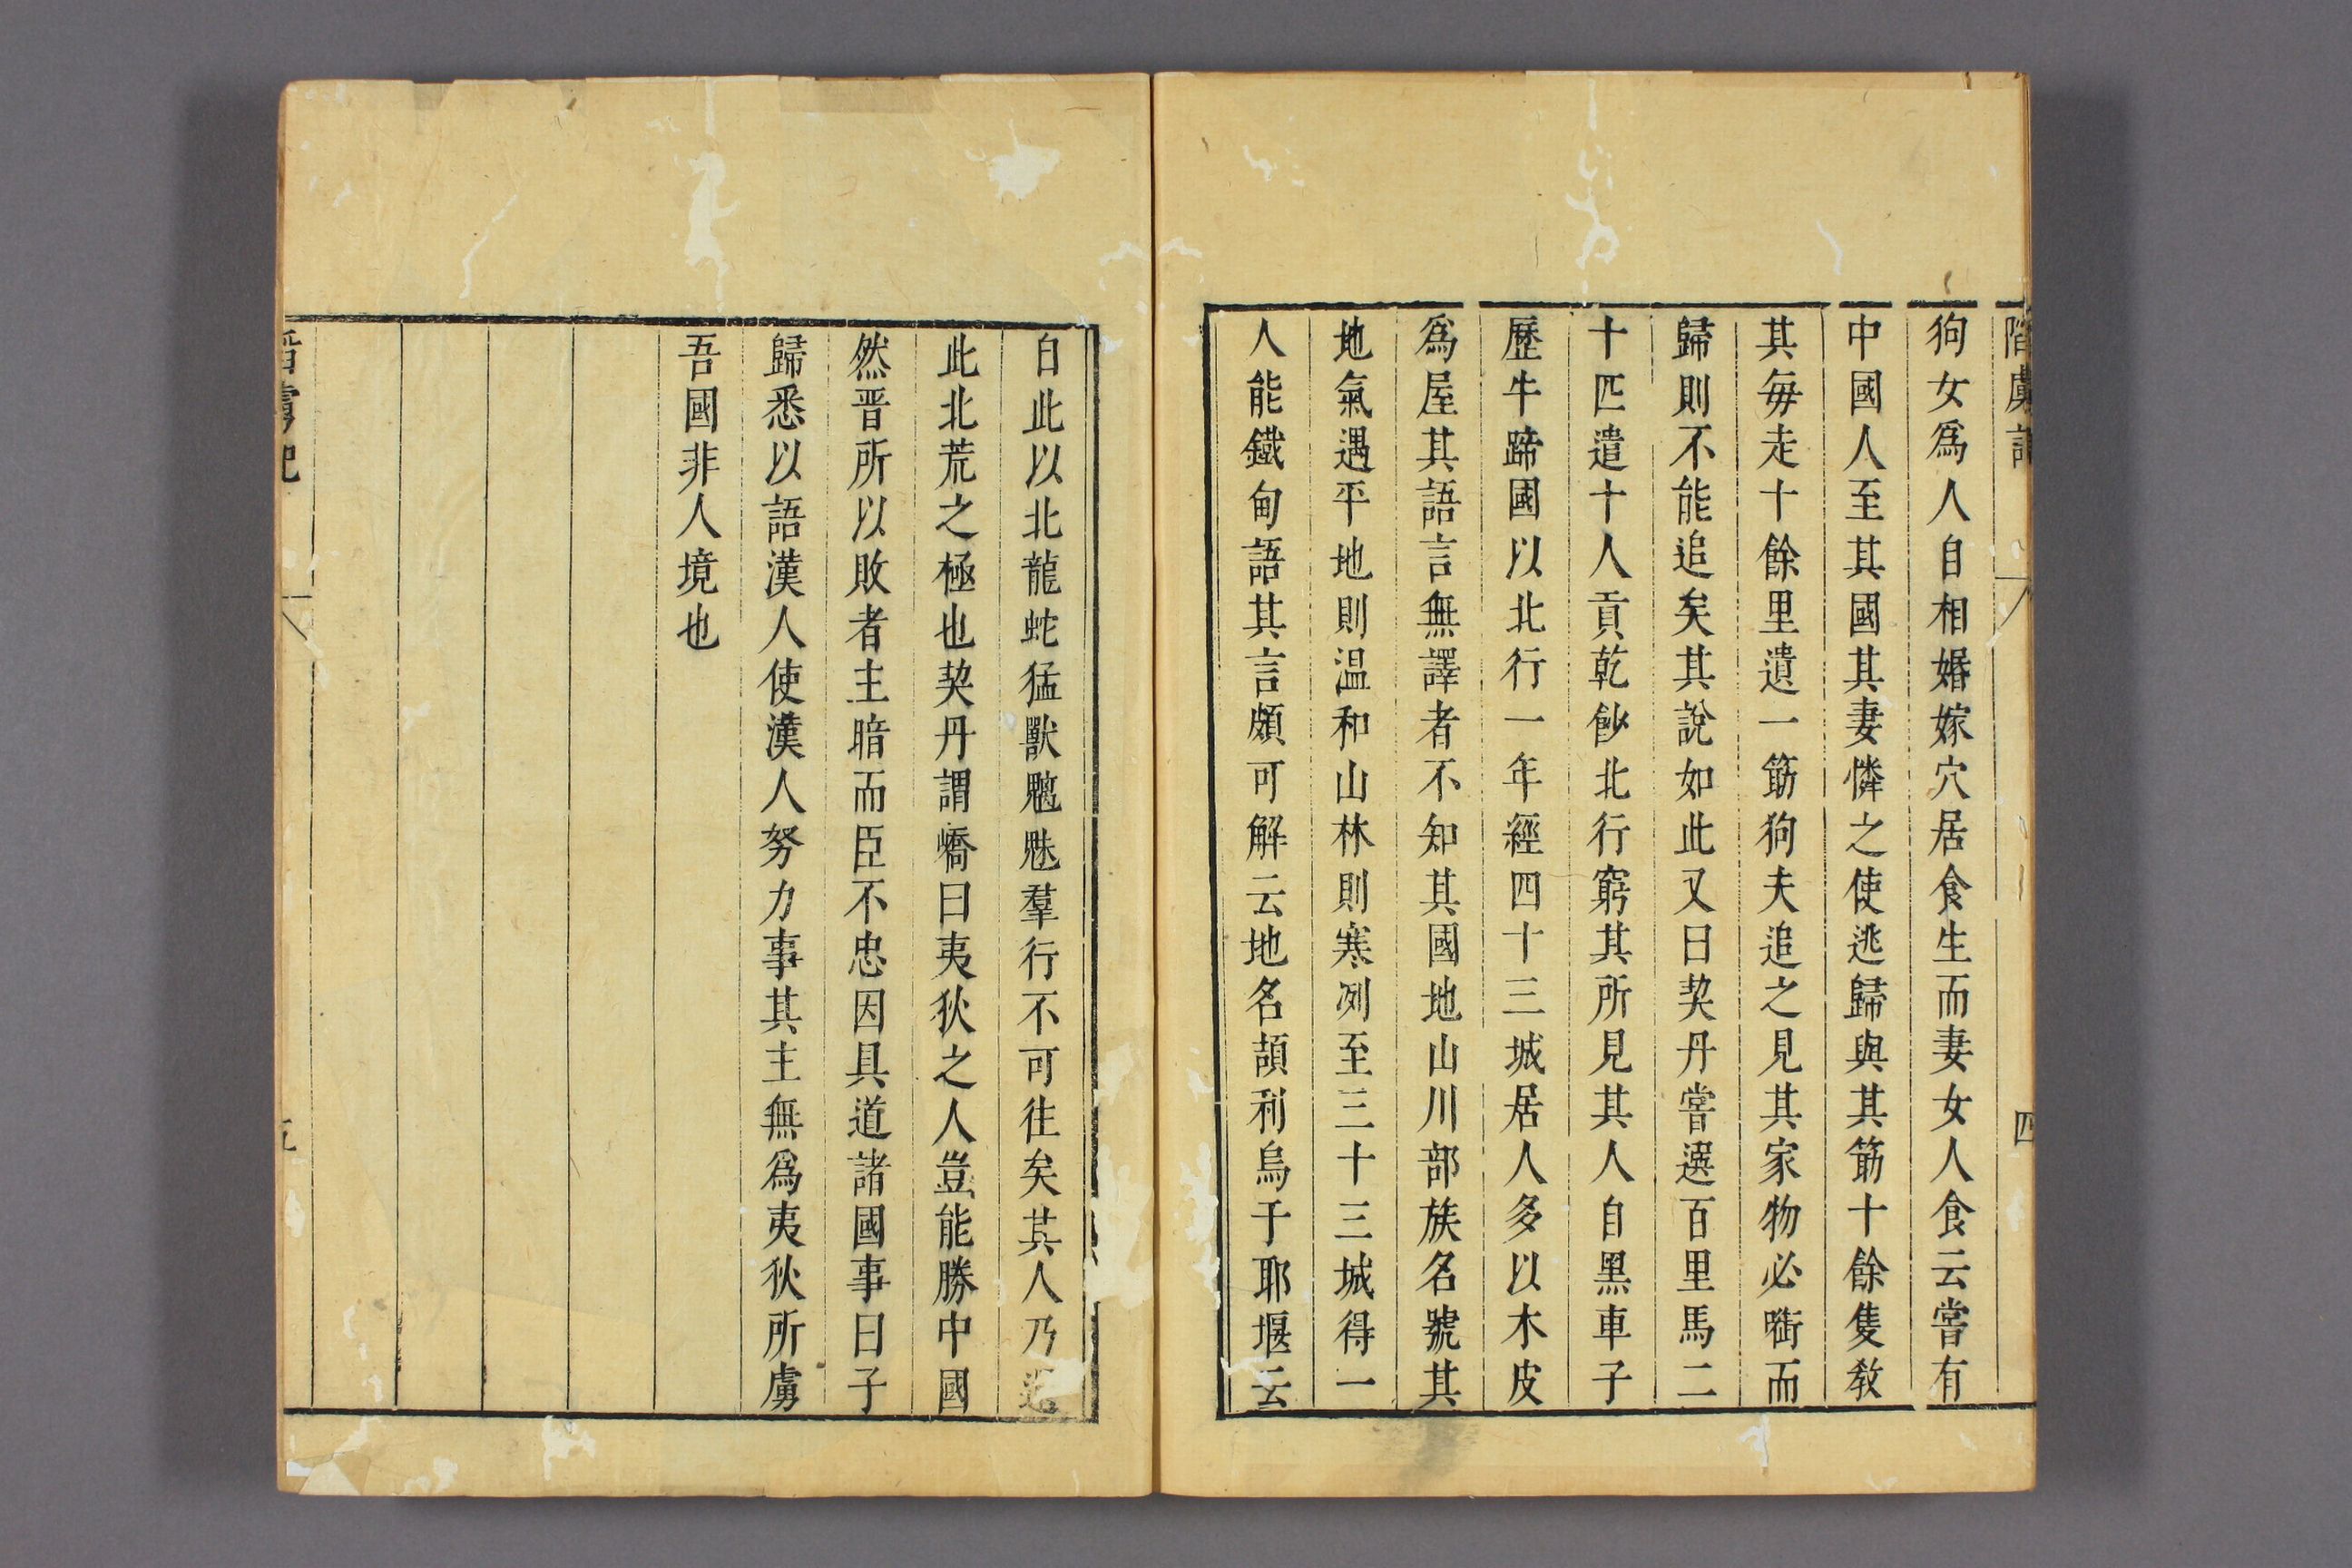 陷虜記
四
狗女爲人自相婚嫁穴居食生而妻女人食云嘗有
中國人至其國其妻憐之使逃歸與其筯十餘隻敎
其毎走十餘里遺一筯狗夫追之見其家物必㗸而
歸則不能追矣其說如此又曰契丹嘗選百里馬二
十匹遣十人貢乾𩚫北行窮其所見其人自黑車子
歷牛蹄國以北行一年經四十三城居人多以木皮
爲屋其語言無譯者不知其國地山川部族名號其
地氣遇平地則温和山林則寒冽至三十三城得一
人能鐵甸語其言頗可解云地名頡利烏于耶堰云
白此以北龍蛇猛獸魑魅羣行不可往矣其人乃還
此北荒之極也契丹謂嶠曰夷狄之人豈能勝中國
然晋所以敗者主暗而臣不忠因具道諸國事曰子
歸悉以語漢人使漢人努力事其主無爲夷狄所虜
吾國非人境也
陷虜記
五